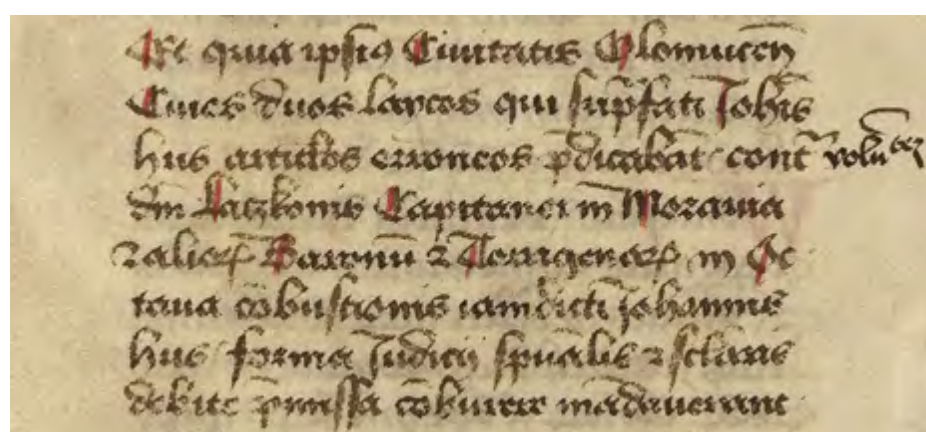 Et quia ipsiꝰ Ciuitatis Olomucen̄
Ciues duos laycos qui sup̄fati Joh̄is
hus articl̄os erroneos p̄dicabāt cont͛ volūtez
dn̄i Latzkonis Capitanei in Morauia
⁊ alioꝝ Baronū ⁊ Terrigenaꝝ in Oc
taua cōbustionis iamdicti Johannis
hus forma Judicij sp̄ualis ⁊ sc̄laris
debite p̄missa cōburere mādauerant